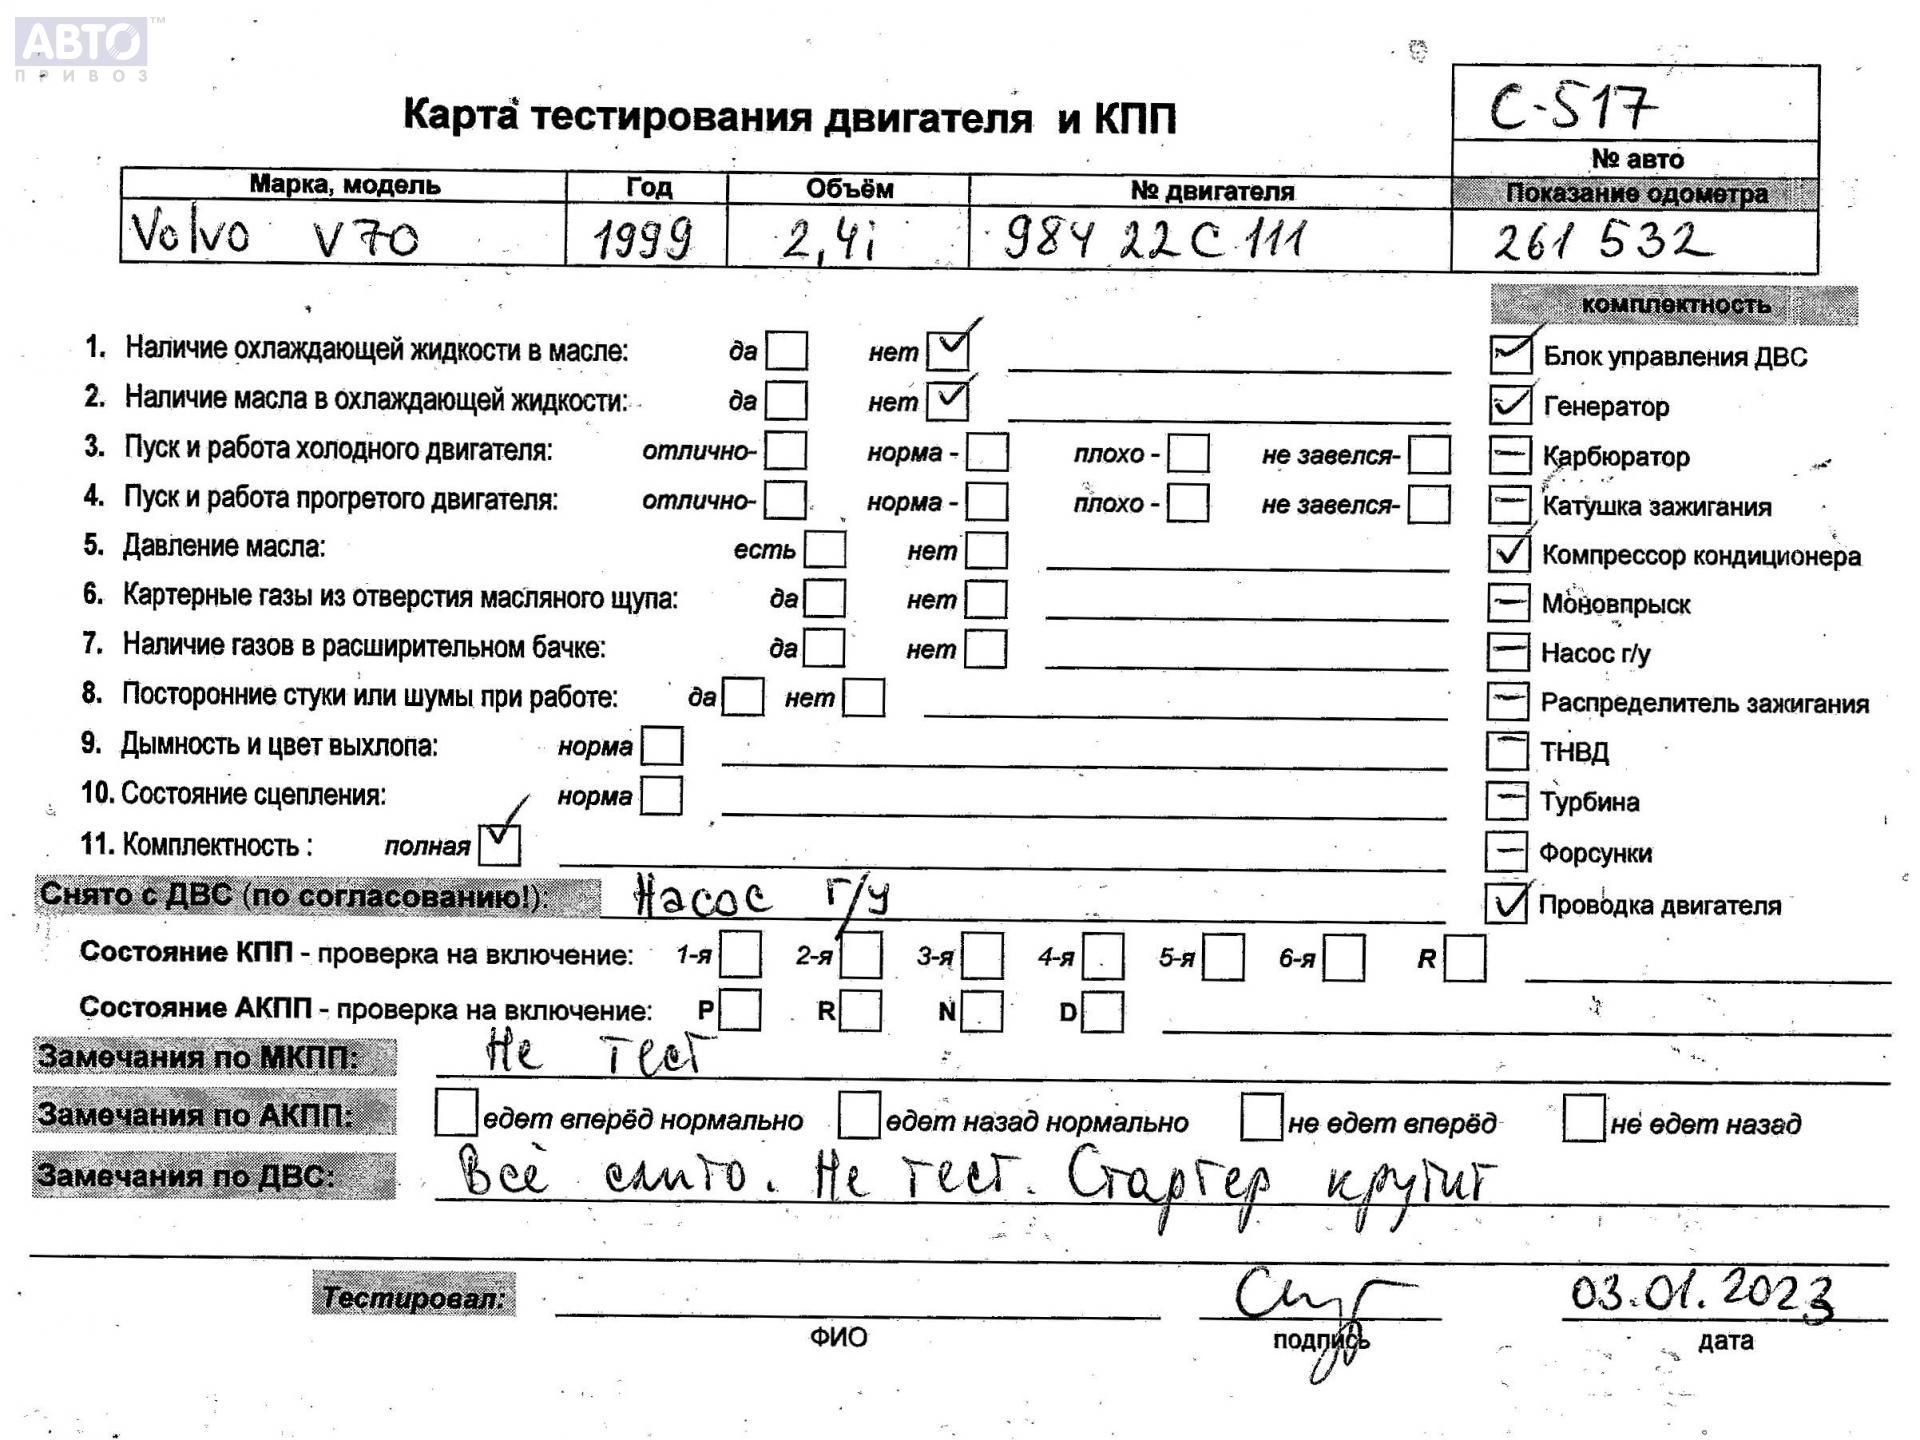 АВТО™
ПРИВОЗ
С-517
Карта тестирования двигателя и КПП
№ авто
Марка, модель Год Объём № двигателя Показание одометра
Volvo V70 1999 2,4i 984 22C 111 261 532
комплектность
1. Наличие охлаждающей жидкости в масле: да нет Блок управления ДВС
2. Наличие масла в охлаждающей жидкости: да нет Генератор
3. Пуск и работа холодного двигателя: отлично- норма - плохо - не завелся- Карбюратор
4. Пуск и работа прогретого двигателя: отлично- норма - плохо - не завелся- Катушка зажигания
5. Давление масла: есть нет Компрессор кондиционера
6. Картерные газы из отверстия масляного щупа: да нет Моновпрыск
7. Наличие газов в расширительном бачке: да нет Насос г/у
8. Посторонние стуки или шумы при работе: да нет Распределитель зажигания
9. Дымность и цвет выхлопа: норма ТНВД
10. Состояние сцепления: норма Турбина
11. Комплектность : полная Форсунки
Снято с ДВС (по согласованию!): Насос г/у Проводка двигателя
Состояние КПП - проверка на включение: 1-я 2-я 3-я 4-я 5-я 6-я R
Состояние АКПП - проверка на включение: P R N D
Замечания по МКПП: Не тест
Замечания по АКПП: едет вперёд нормально едет назад нормально не едет вперёд не едет назад
Замечания по ДВС: Всё слито. Не тест. Стартер крутит
Тестировал: 03.01.2023
ФИО подпись дата